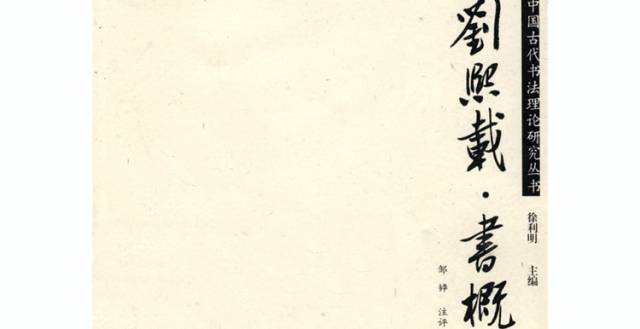 中国古代书法理论研究丛书
徐利明 主编
劉熙載·書概
邹 华 注评